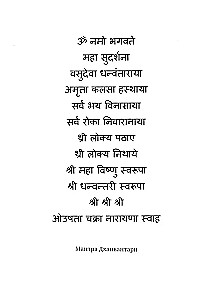 ॐ नमो भगवते
महा सुदर्शना
वसुदेवा धन्वंताराया
अमृता कलसा हस्थाया
सर्व भय विनासाया
सर्व रोका निवारानाया
थ्री लोक्य पठाए
थ्री लोक्य निथाये
श्री महा विष्णु स्वरूपा
श्री धन्वन्तरी स्वरूपा
श्री श्री श्री
ओउषता चक्रा नारायणा स्वाहा
Мантра Дханвантари